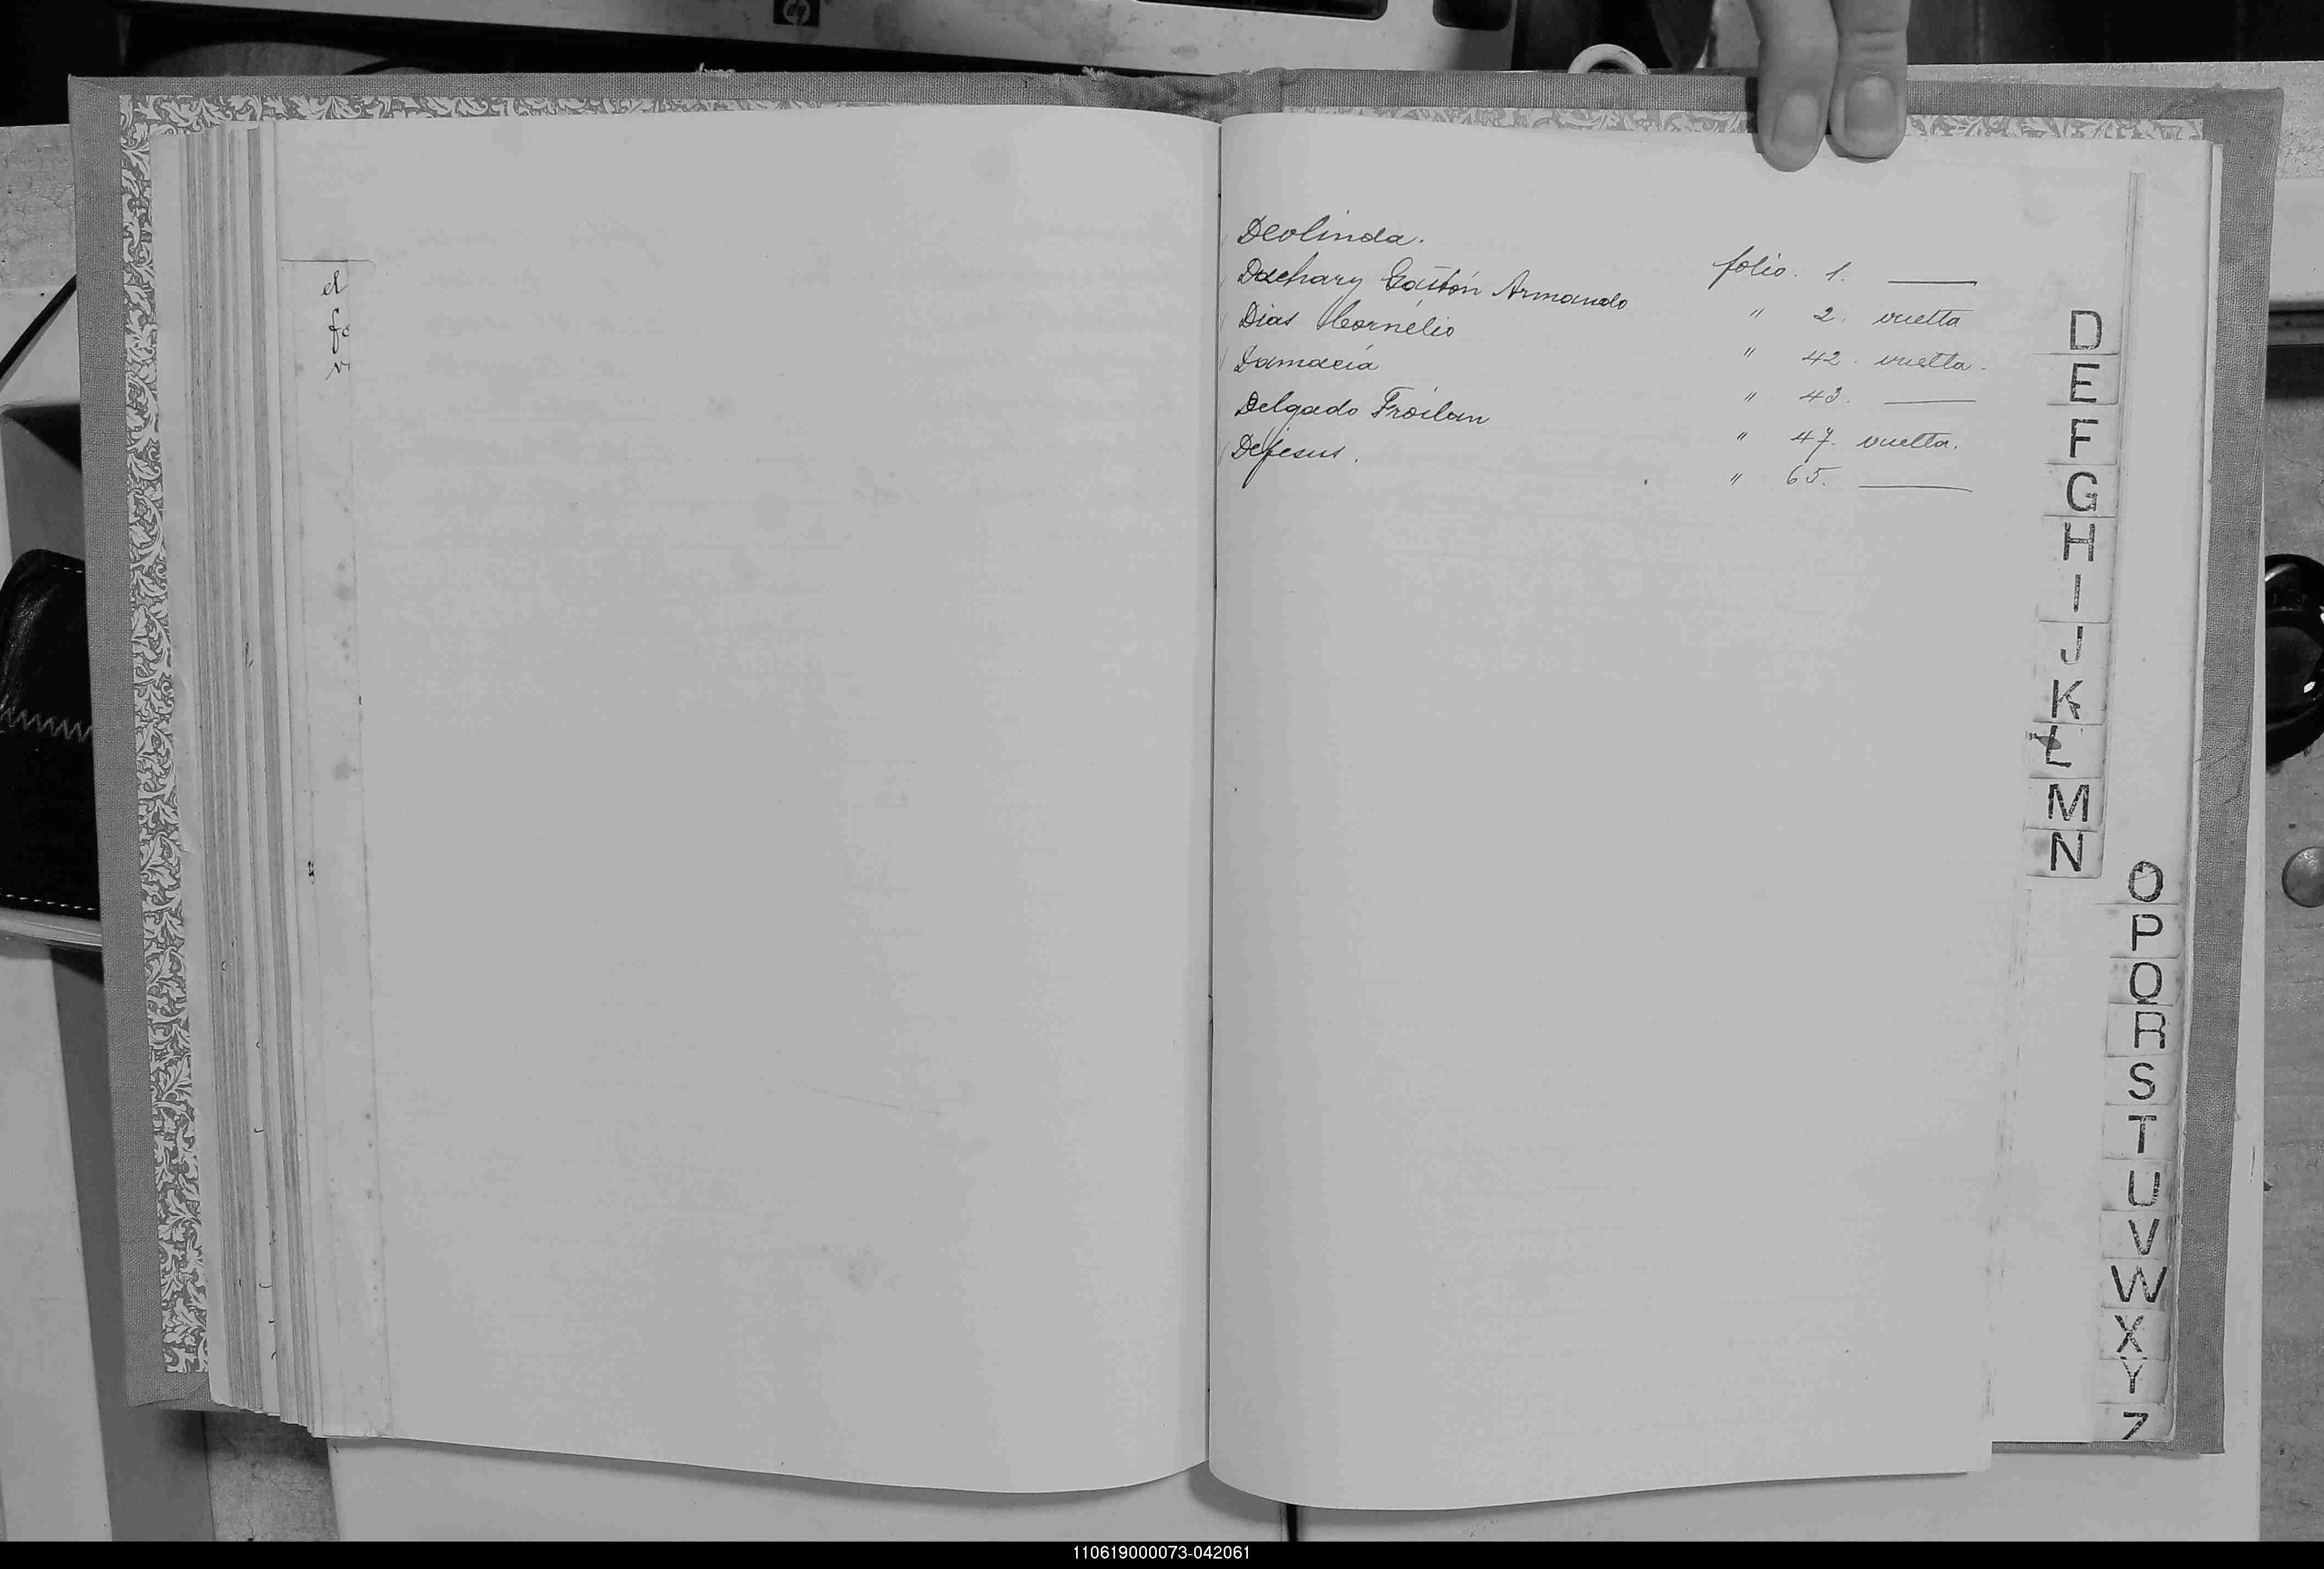 el
fo
v
Deolinda. folio. 1. ———
Dachary Gastón Armando " 2. vuelta
Dias Cornelio " 42. vuelta.
Damacia " 43. ———
Delgado Froilan " 47. vuelta.
Dejesus. " 65. ———
D
E
F
G
H
I
J
K
L
M
N
O
P
Q
R
S
T
U
V
W
X
Y
Z
110619000073-042061